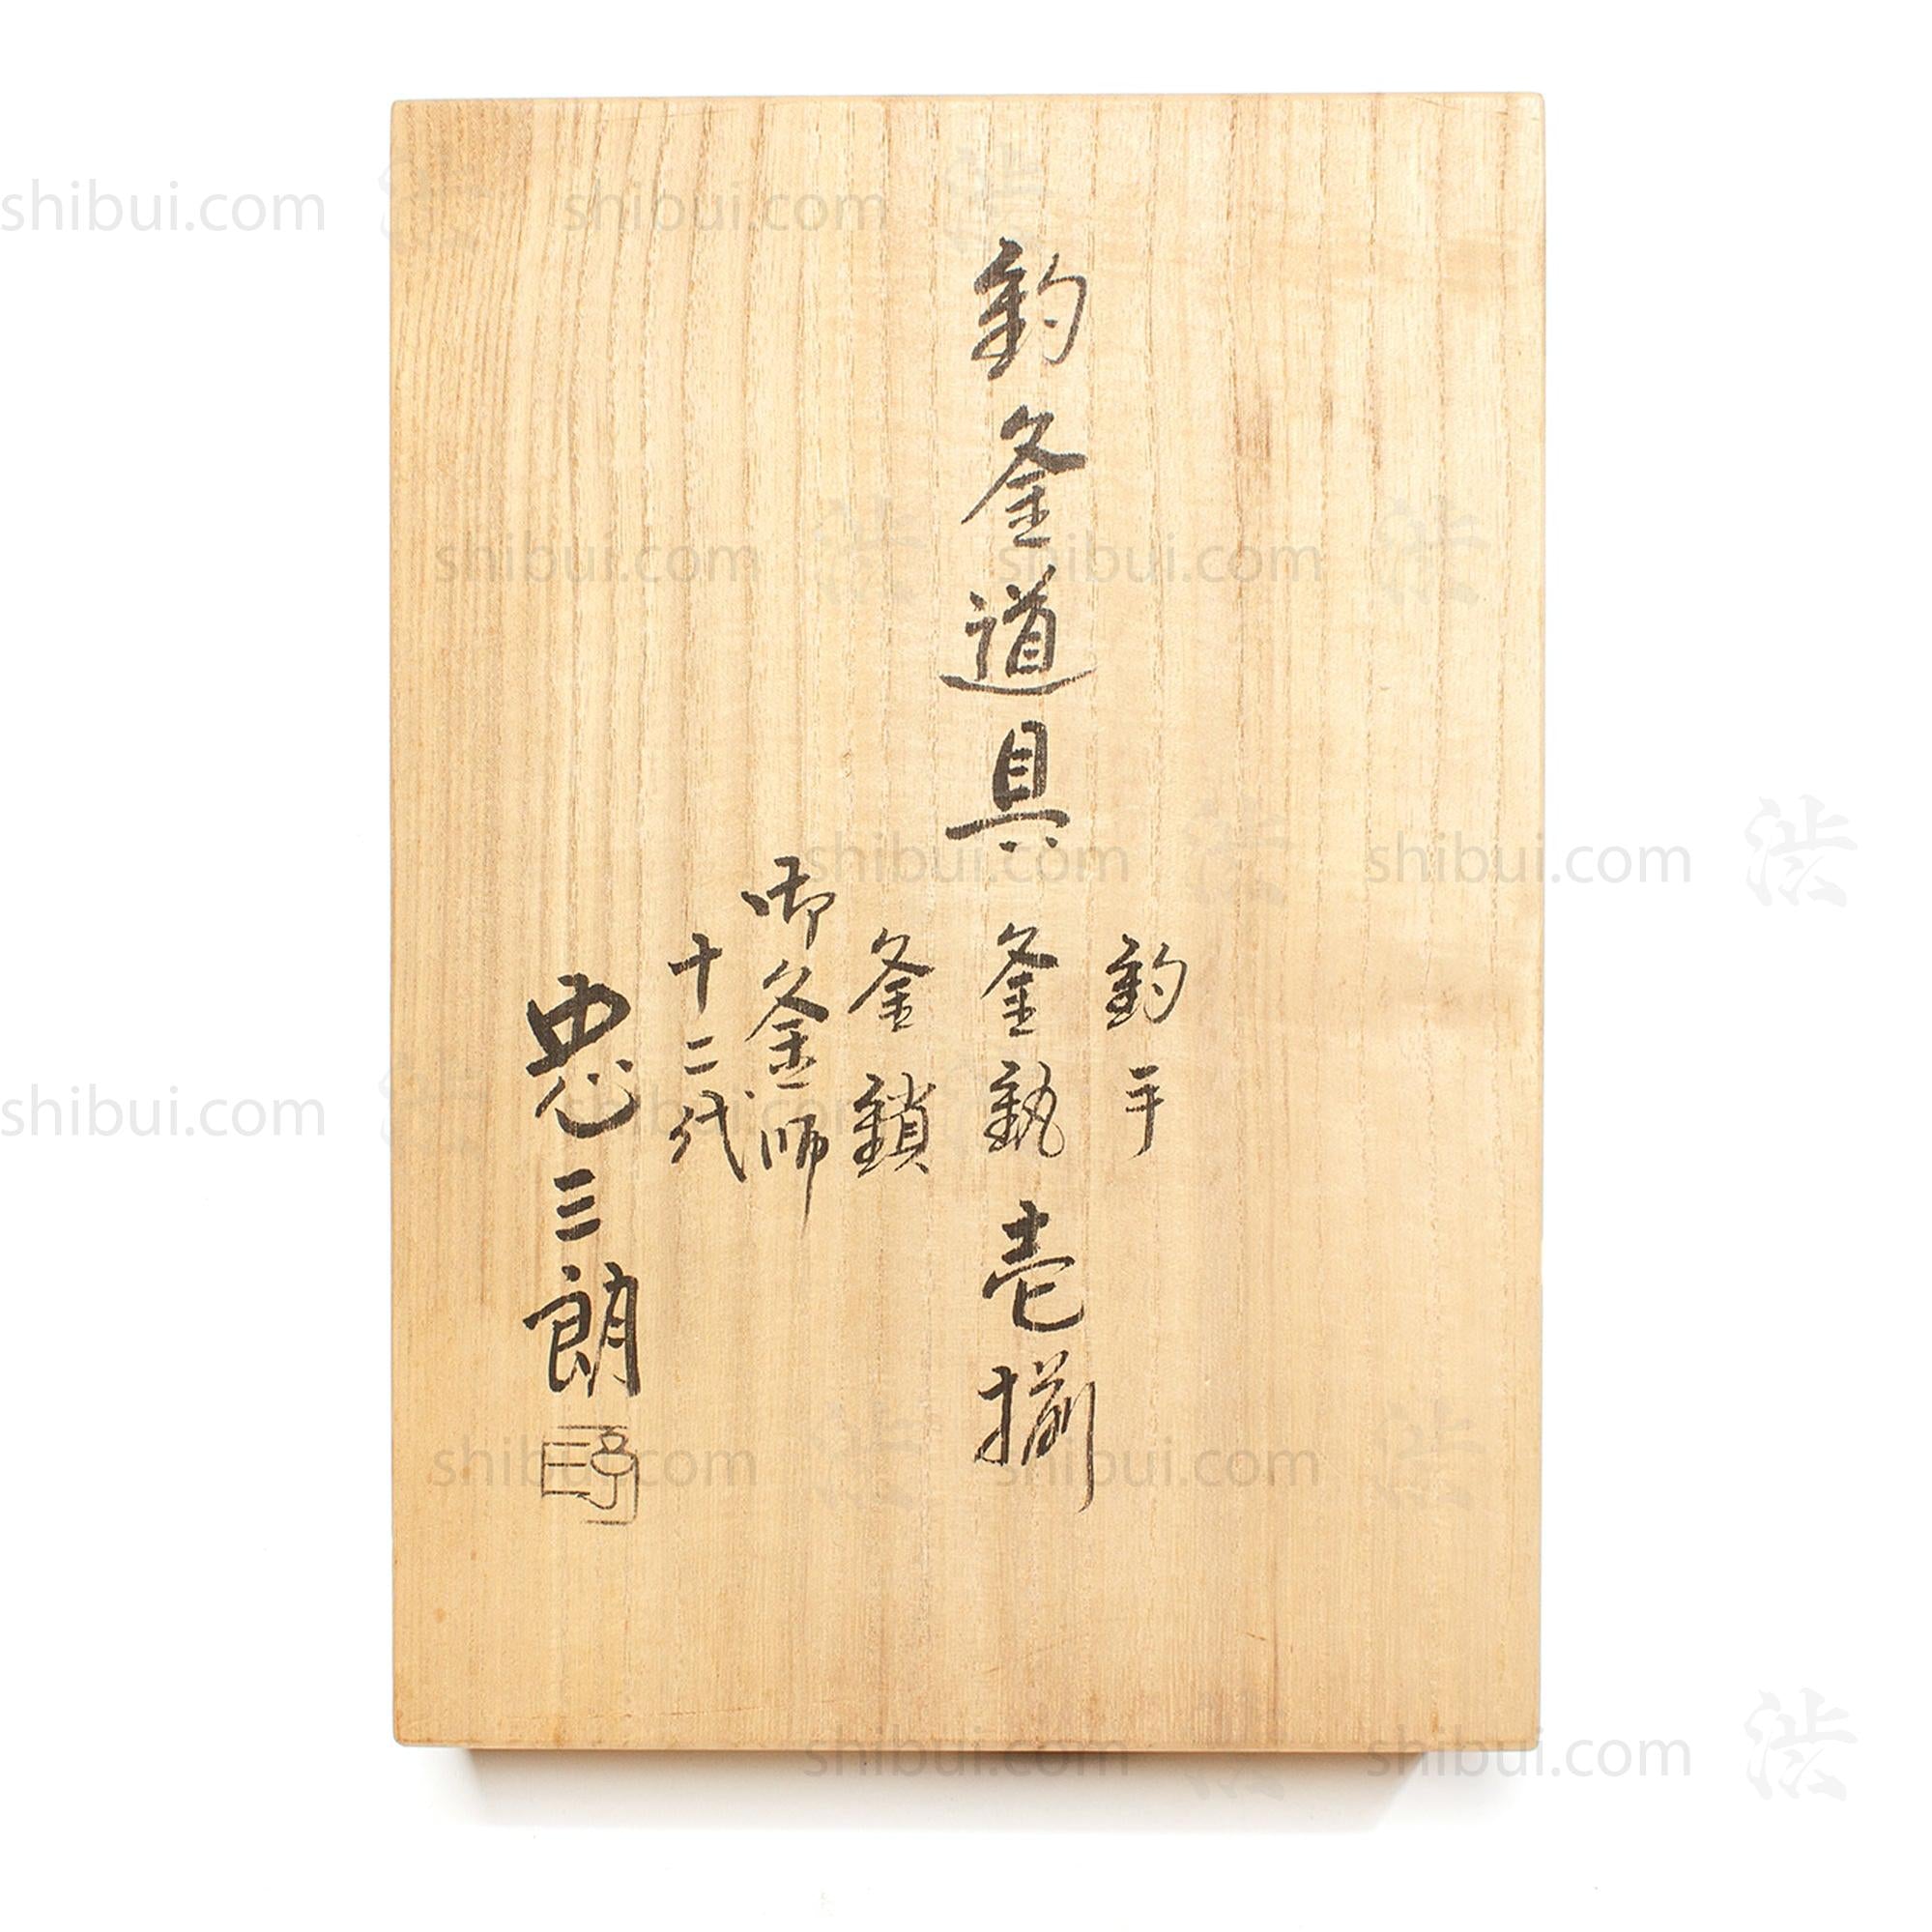 釣手
釣釜道具 釜釻 壱揃
釜鎖
御釜師
十二代
忠三朗
shibui.com 渋 shibui.com 渋
shibui.com 渋 shibui.com 渋
shibui.com 渋 shibui.com 渋
shibui.com 渋 shibui.com 渋
shibui.com 渋 shibui.com 渋
shibui.com 渋 shibui.com 渋